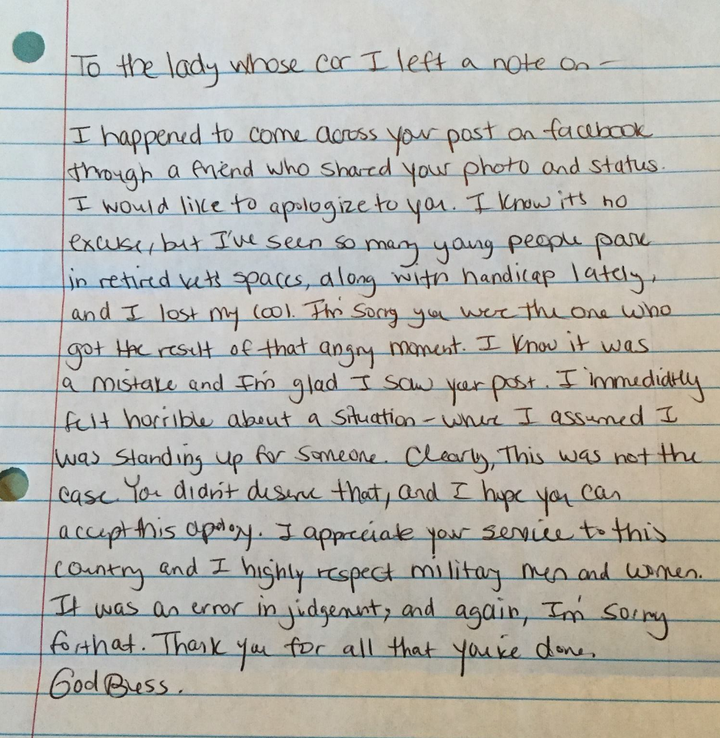 To the lady whose car I left a note on -
I happened to come across your post on facebook
through a friend who shared your photo and status.
I would like to apologize to you. I know its no
excuse, but I've seen so many young people park
in retired vets spaces, along with handicap lately,
and I lost my cool. I'm sorry you were the one who
got the result of that angry moment. I know it was
a mistake and I'm glad I saw your post. I immediatly
felt horrible about a situation - where I assumed I
was standing up for someone. Clearly, This was not the
case. You didn't deserve that, and I hope you can
accept this apology. I appreciate your service to this
country and I highly respect military men and women.
It was an error in judgement, and again, I'm sorry
for that. Thank you for all that you've done.
God Bless.